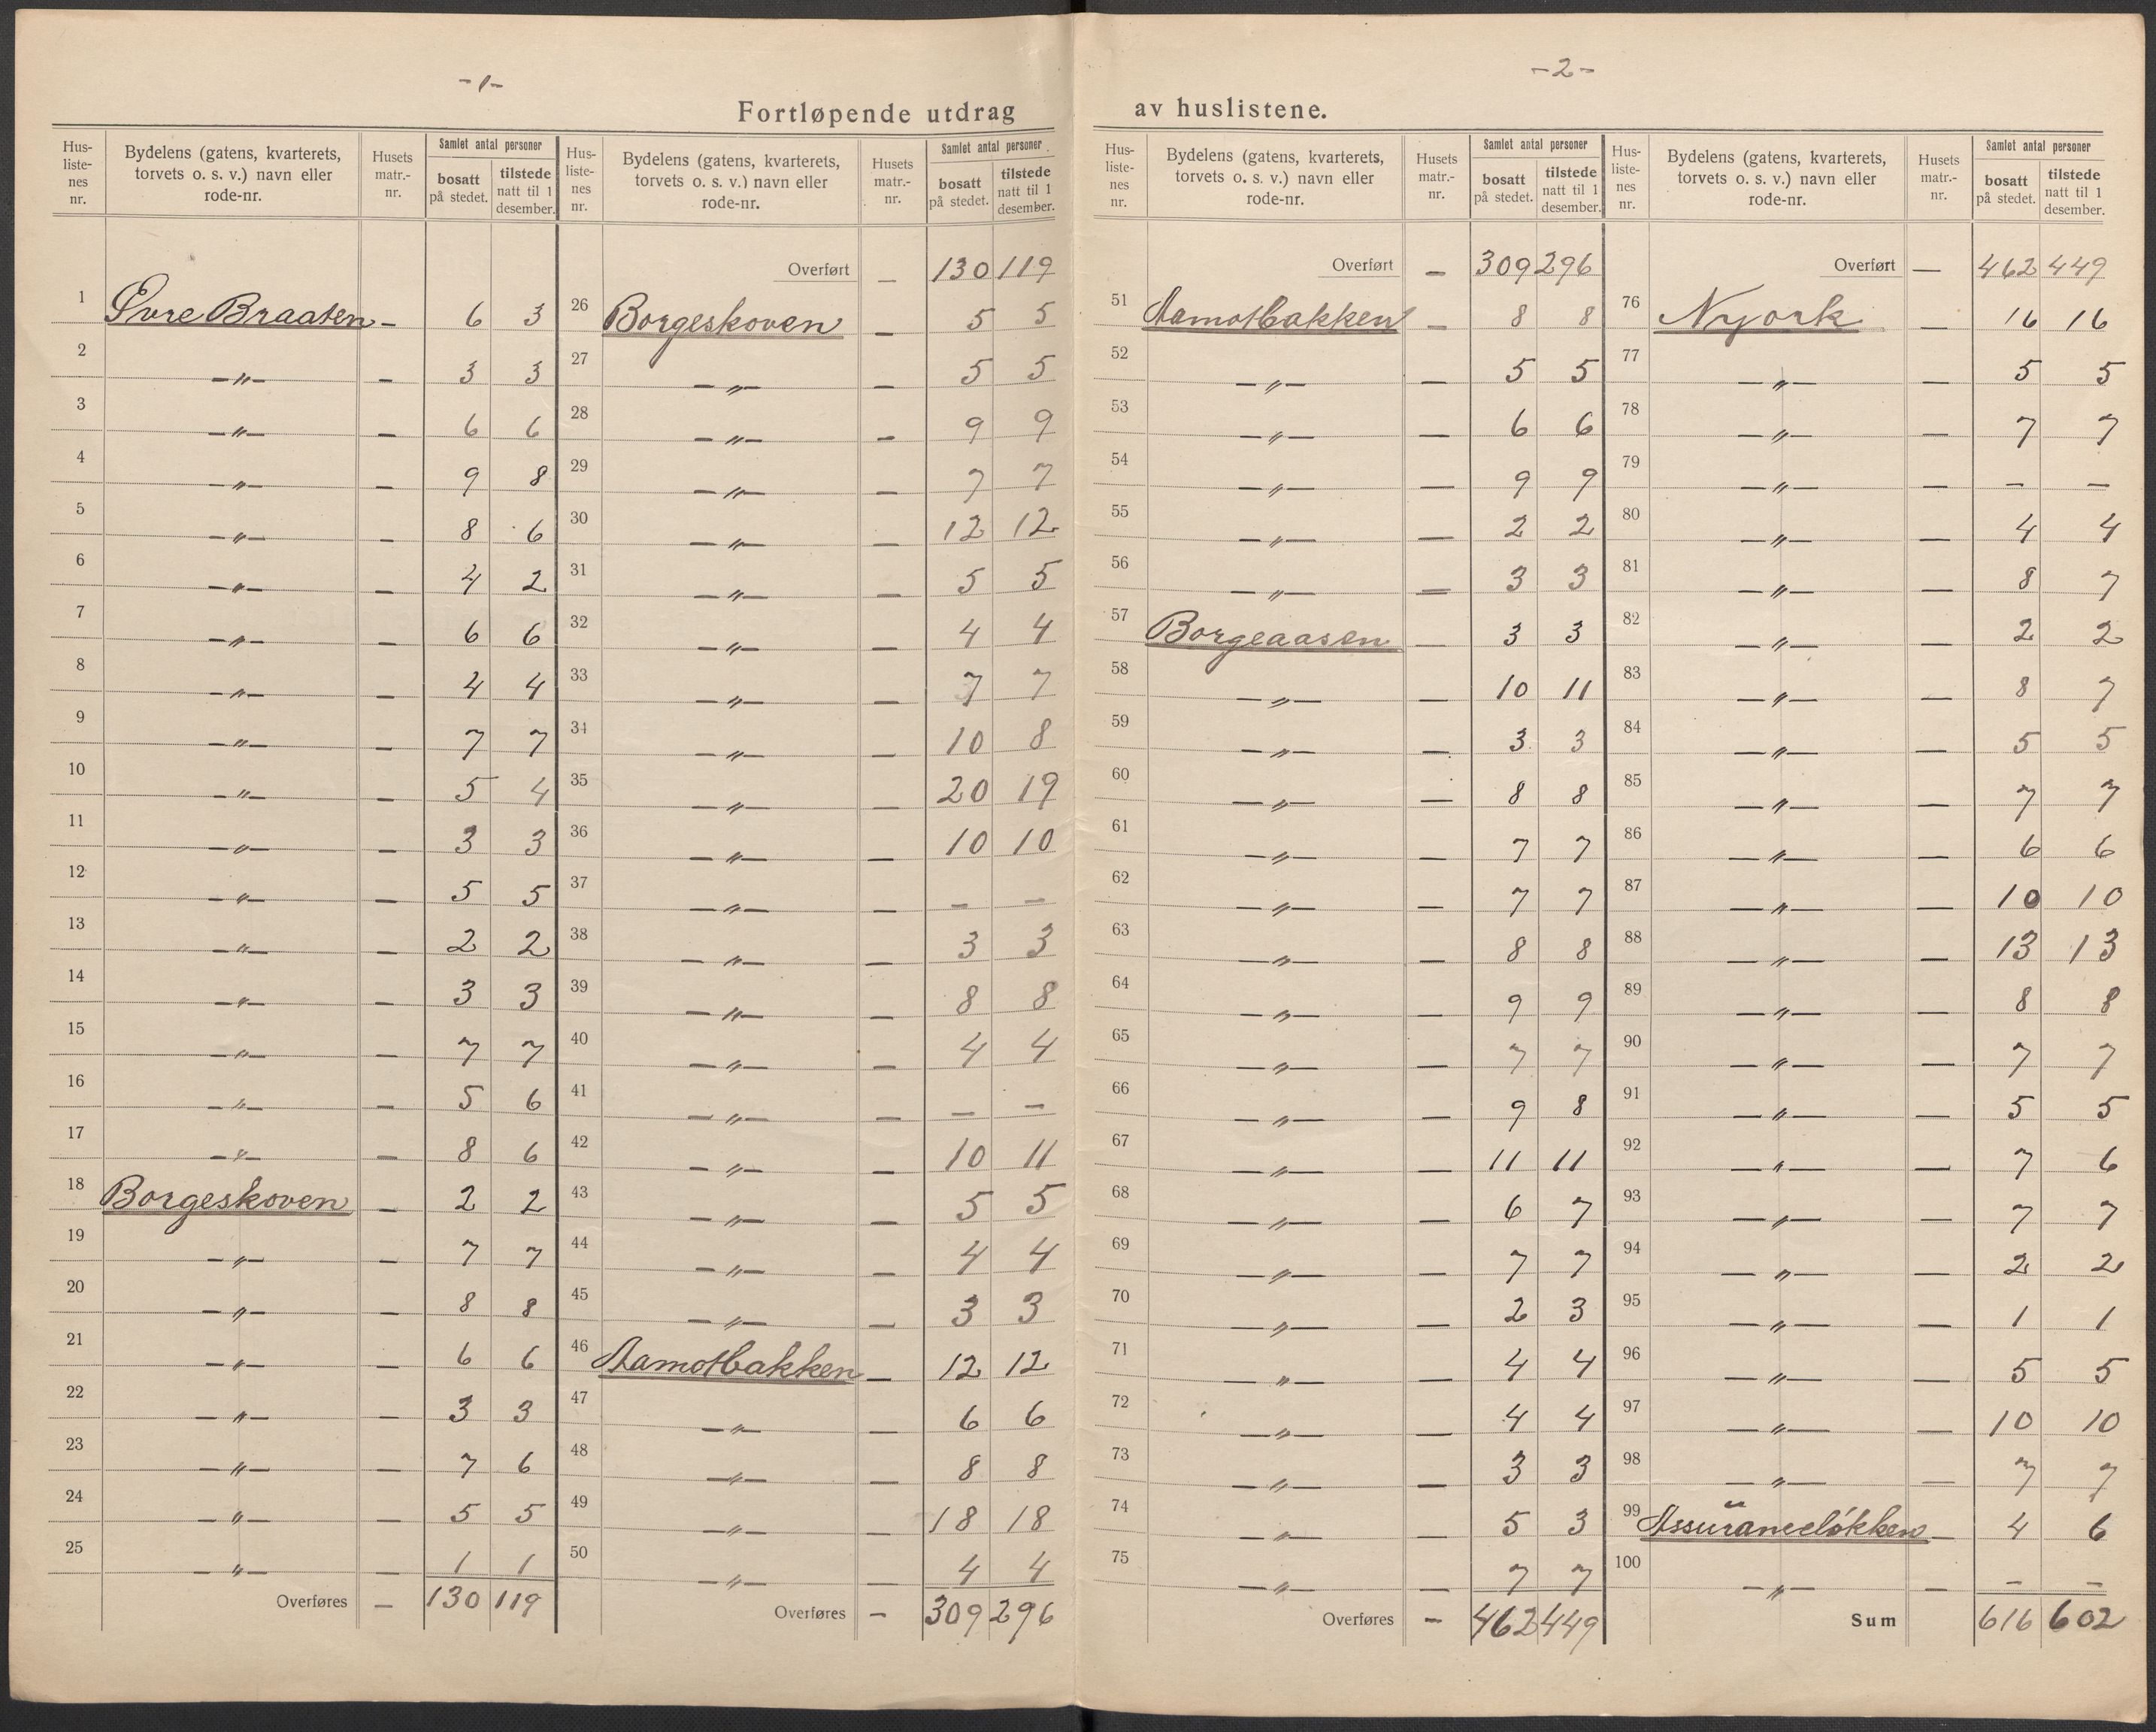 -1-
Fortløpende utdrag
Hus-liste-nes nr. | Bydelens (gatens, kvarterets, torvets o. s. v.) navn eller rode-nr. | Husets matr.-nr. | Samlet antal personer | bosatt på stedet. | tilstede natt til 1 desember.
1 Øvre Braaten - 6 3
2 -"- - 3 3
3 -"- - 6 6
4 -"- - 9 8
5 -"- - 8 6
6 -"- - 4 2
7 -"- - 6 6
8 -"- - 4 4
9 -"- - 7 7
10 -"- - 5 4
11 -"- - 3 3
12 -"- - 5 5
13 -"- - 2 2
14 -"- - 3 3
15 -"- - 7 7
16 -"- - 5 6
17 -"- - 8 6
18 Borgeskoven - 2 2
19 -"- - 7 7
20 -"- - 8 8
21 -"- - 6 6
22 -"- - 3 3
23 -"- - 7 6
24 -"- - 5 5
25 -"- - 1 1
Overføres - 130 119
Hus-liste-nes nr. | Bydelens (gatens, kvarterets, torvets o. s. v.) navn eller rode-nr. | Husets matr.-nr. | Samlet antal personer | bosatt på stedet. | tilstede natt til 1 desember.
Overført - 130 119
26 Borgeskoven - 5 5
27 -"- - 5 5
28 -"- - 9 9
29 -"- - 7 7
30 -"- - 12 12
31 -"- - 5 5
32 -"- - 4 4
33 -"- - 7 7
34 -"- - 10 8
35 -"- - 20 19
36 -"- - 10 10
37 -"- - - -
38 -"- - 3 3
39 -"- - 8 8
40 -"- - 4 4
41 -"- - - -
42 -"- - 10 11
43 -"- - 5 5
44 -"- - 4 4
45 -"- - 3 3
46 Aamotbakken - 12 12
47 -"- - 6 6
48 -"- - 8 8
49 -"- - 18 18
50 -"- - 4 4
Overføres - 309 296
-2-
av huslistene.
Hus-liste-nes nr. | Bydelens (gatens, kvarterets, torvets o. s. v.) navn eller rode-nr. | Husets matr.-nr. | Samlet antal personer | bosatt på stedet. | tilstede natt til 1 desember.
Overført - 309 296
51 Aamotbakken - 8 8
52 -"- - 5 5
53 -"- - 6 6
54 -"- - 9 9
55 -"- - 2 2
56 -"- - 3 3
57 Borgeaasen - 3 3
58 -"- - 10 11
59 -"- - 3 3
60 -"- - 8 8
61 -"- - 7 7
62 -"- - 7 7
63 -"- - 8 8
64 -"- - 9 9
65 -"- - 7 7
66 -"- - 9 8
67 -"- - 11 11
68 -"- - 6 7
69 -"- - 7 7
70 -"- - 2 3
71 -"- - 4 4
72 -"- - 4 4
73 -"- - 3 3
74 -"- - 5 3
75 -"- - 7 7
Overføres - 462 449
Hus-liste-nes nr. | Bydelens (gatens, kvarterets, torvets o. s. v.) navn eller rode-nr. | Husets matr.-nr. | Samlet antal personer | bosatt på stedet. | tilstede natt til 1 desember.
Overført - 462 449
76 Nyork - 16 16
77 -"- - 5 5
78 -"- - 7 7
79 -"- - - -
80 -"- - 4 4
81 -"- - 8 7
82 -"- - 2 2
83 -"- - 8 7
84 -"- - 5 5
85 -"- - 7 7
86 -"- - 6 6
87 -"- - 10 10
88 -"- - 13 13
89 -"- - 8 8
90 -"- - 7 7
91 -"- - 5 5
92 -"- - 7 6
93 -"- - 7 7
94 -"- - 2 2
95 -"- - 1 1
96 -"- - 5 5
97 -"- - 10 10
98 -"- - 7 7
99 Assuranceløkken - 4 6
100 -"- - - -
Sum 616 602